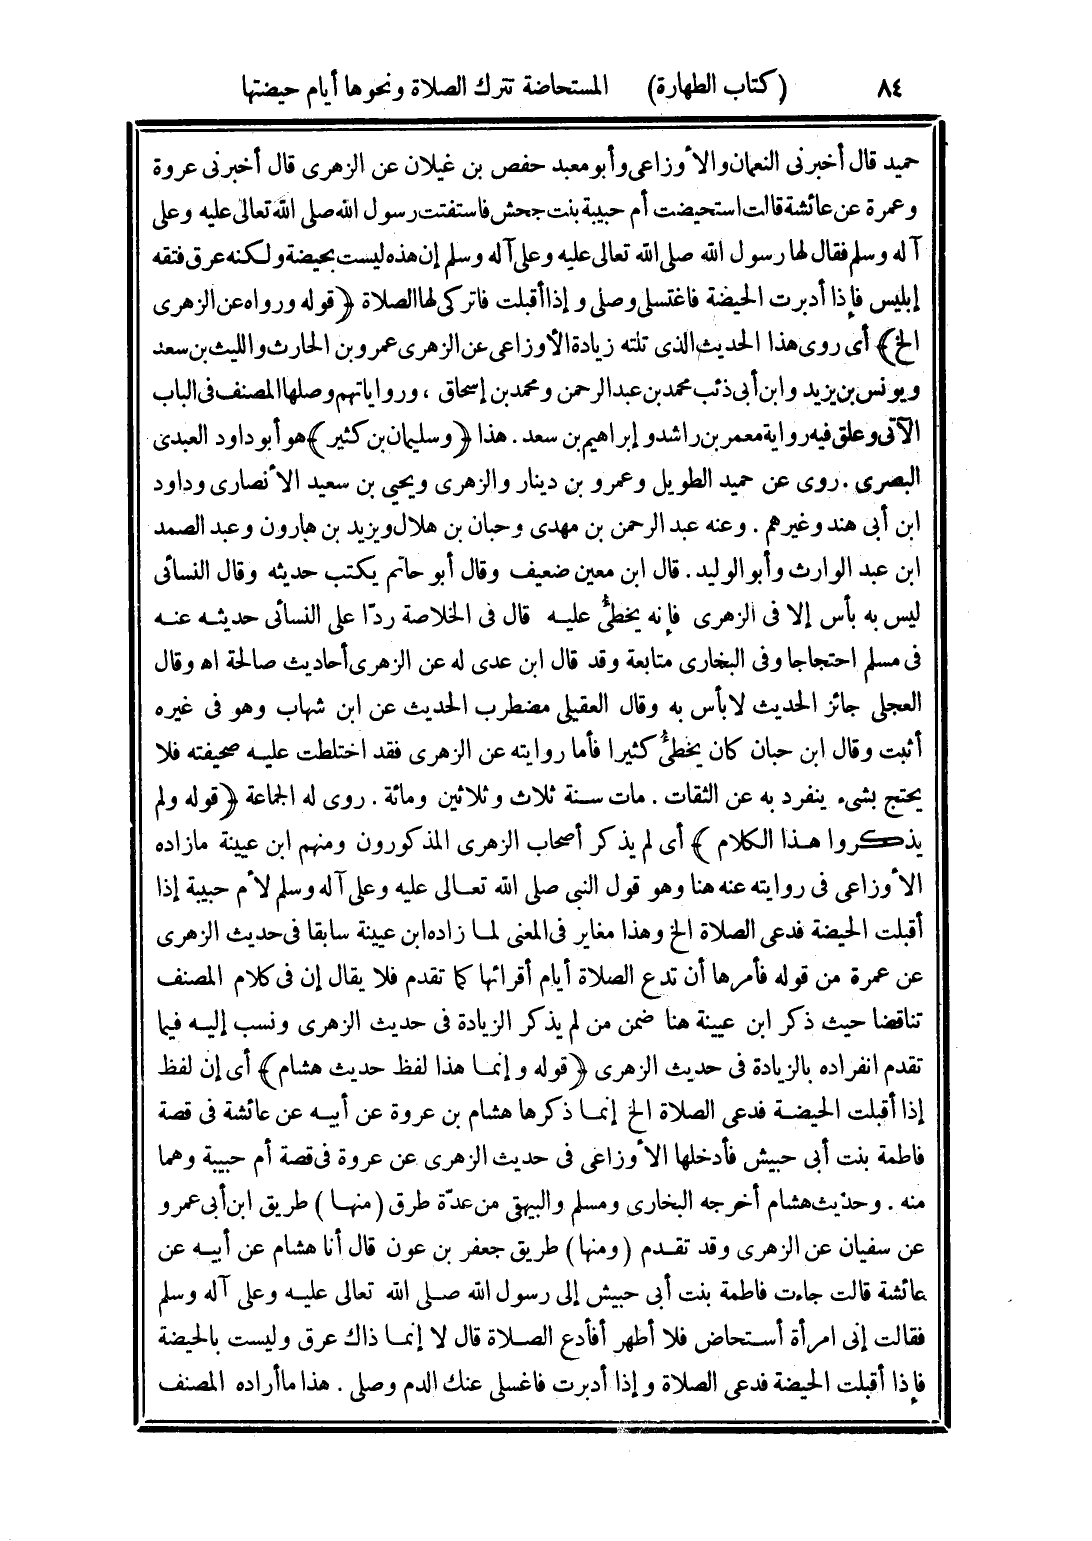 ٨٤ (كتاب الطهارة) المستحاضة تترك الصلاة ونحوها أيام حيضتها
حميد قال أخبرنى النعمان والأوزاعى وأبو معبد حفص بن غيلان عن الزهرى قال أخبرنى عروة
وعمرة عن عائشة قالت استحيضت أم حبيبة بنت جحش فاستفتت رسول الله صلى الله تعالى عليه وعلى
آله وسلم فقال لها رسول الله صلى الله تعالى عليه وعلى آله وسلم إن هذه ليست بحيضة ولكنه عرق فتقه
إبليس فإذا أدبرت الحيضة فاغتسلى وصلى وإذا أقبلت فاتركى لها الصلاة ﴿قوله ورواه عن الزهرى
الخ﴾ أى روى هذا الحديث الذى تلته زيادة الأوزاعى عن الزهرى عمرو بن الحارث والليث بن سعد
ويونس بن يزيد وابن أبى ذئب محمد بن عبد الرحمن ومحمد بن إسحاق ، ورواياتهم وصلها المصنف فى الباب
الآتى وعلق فيه رواية معمر بن راشد وإبراهيم بن سعد . هذا ﴿وسليمان بن كثير﴾ هو أبو داود العبدى
البصرى . روى عن حميد الطويل وعمرو بن دينار والزهرى ويحيى بن سعيد الأنصارى وداود
ابن أبى هند وغيرهم . وعنه عبد الرحمن بن مهدى وحبان بن هلال ويزيد بن هارون وعبد الصمد
ابن عبد الوارث وأبو الوليد . قال ابن معين ضعيف وقال أبو حاتم يكتب حديثه وقال النسائى
ليس به بأس إلا فى الزهرى فإنه يخطئُ عليه قال فى الخلاصة ردّا على النسائى حديثه عنه
فى مسلم احتجاجا وفى البخارى متابعة وقد قال ابن عدى له عن الزهرى أحاديث صالحة اه وقال
العجلى جائز الحديث لا بأس به وقال العقيلى مضطرب الحديث عن ابن شهاب وهو فى غيره
أثبت وقال ابن حبان كان يخطئُ كثيرا فأما روايته عن الزهرى فقد اختلطت عليه صحيفته فلا
يحتج بشىء ينفرد به عن الثقات . مات سنة ثلاث وثلاثين ومائة . روى له الجماعة ﴿قوله ولم
يذكروا هذا الكلام﴾ أى لم يذكر أصحاب الزهرى المذكورون ومنهم ابن عيينة مازاده
الأوزاعى فى روايته عنه هنا وهو قول النبى صلى الله تعالى عليه وعلى آله وسلم لأم حبيبة إذا
أقبلت الحيضة فدعى الصلاة الخ وهذا مغاير فى المعنى لما زاده ابن عيينة سابقا فى حديث الزهرى
عن عمرة من قوله فأمرها أن تدع الصلاة أيام أقرائها كما تقدم فلا يقال إن فى كلام المصنف
تناقضا حيث ذكر ابن عيينة هنا ضمن من لم يذكر الزيادة فى حديث الزهرى ونسب إليه فيما
تقدم انفراده بالزيادة فى حديث الزهرى ﴿قوله وإنما هذا لفظ حديث هشام﴾ أى إن لفظ
إذا أقبلت الحيضة فدعى الصلاة الخ إنما ذكرها هشام بن عروة عن أبيه عن عائشة فى قصة
فاطمة بنت أبى حبيش فأدخلها الأوزاعى فى حديث الزهرى عن عروة فى قصة أم حبيبة وهما
منه . وحديث هشام أخرجه البخارى ومسلم والبيهقى من عدّة طرق (منها) طريق ابن أبى عمرو
عن سفيان عن الزهرى وقد تقدم (ومنها) طريق جعفر بن عون قال أنا هشام عن أبيه عن
عائشة قالت جاءت فاطمة بنت أبى حبيش إلى رسول الله صلى الله تعالى عليه وعلى آله وسلم
فقالت إنى امرأة أستحاض فلا أطهر أفأدع الصلاة قال لا إنما ذاك عرق وليست بالحيضة
فإذا أقبلت الحيضة فدعى الصلاة وإذا أدبرت فاغسلى عنك الدم وصلى . هذا ما أراده المصنف